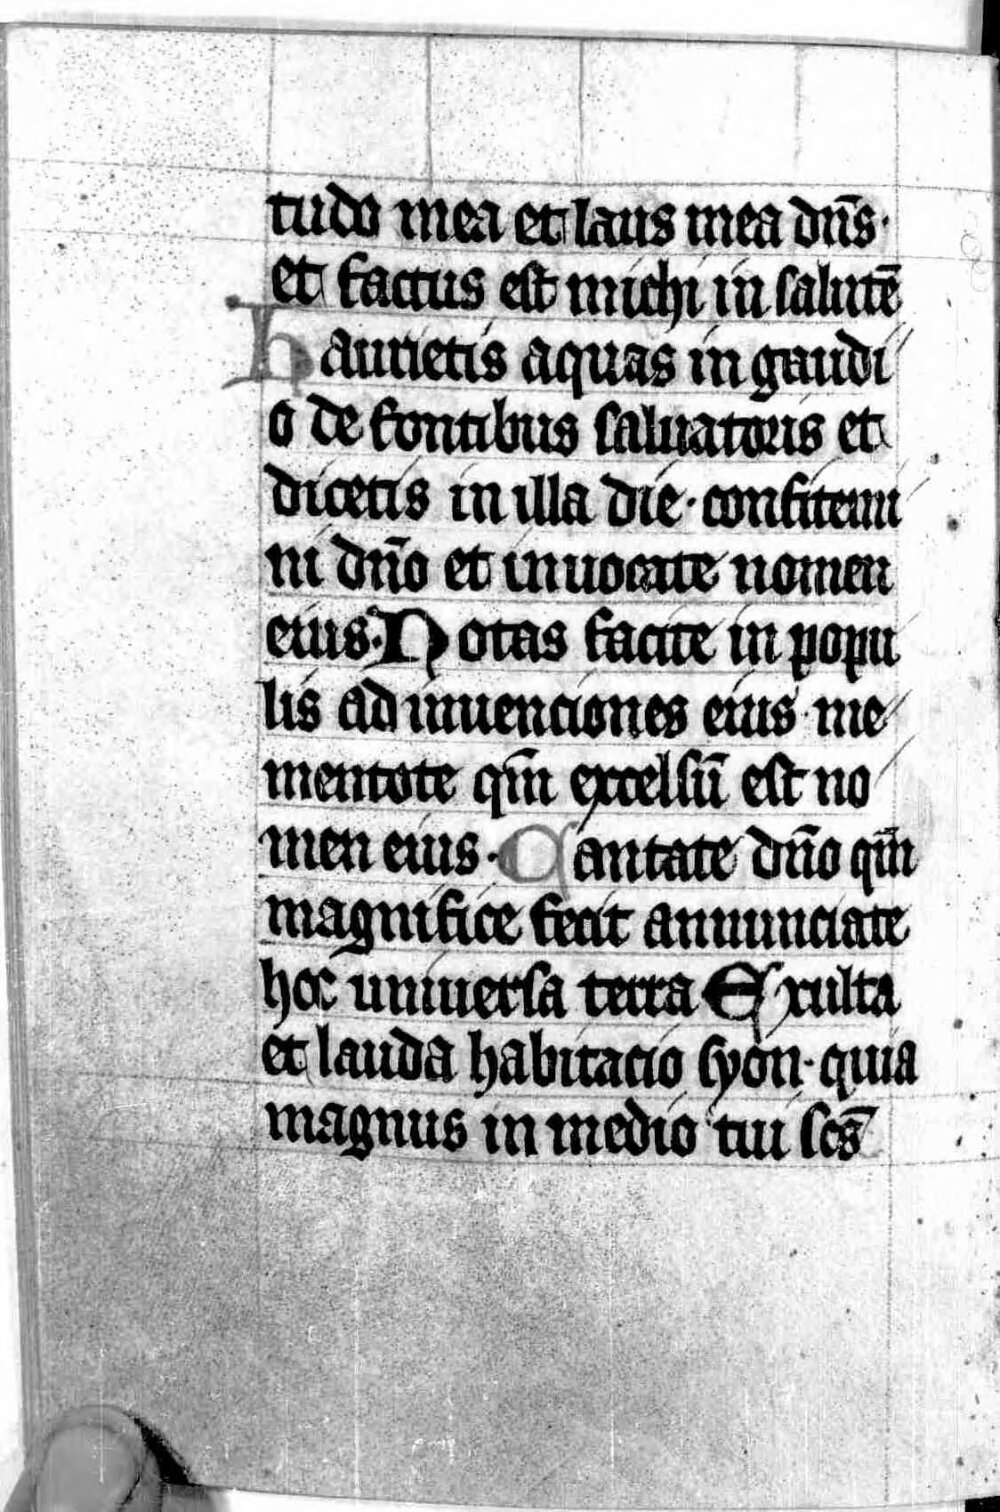 tudo mea et laus mea dn̄s·
et factus est michi in salutē
Haurietis aquas in gaudi
o de fontibus saluatoris et
dicetis in illa die· confitemi
ni dn̄o et inuocate nomen
eius· Notas facite in popu
lis adinuenciones eius· me
mentote qm̄ excelsū est no
men eius· Cantate dn̄o qm̄
magnifice fecit annunciate
hoc uniuersa terra Exulta
et lauda habitacio syon· quia
magnus in medio tui scs̄